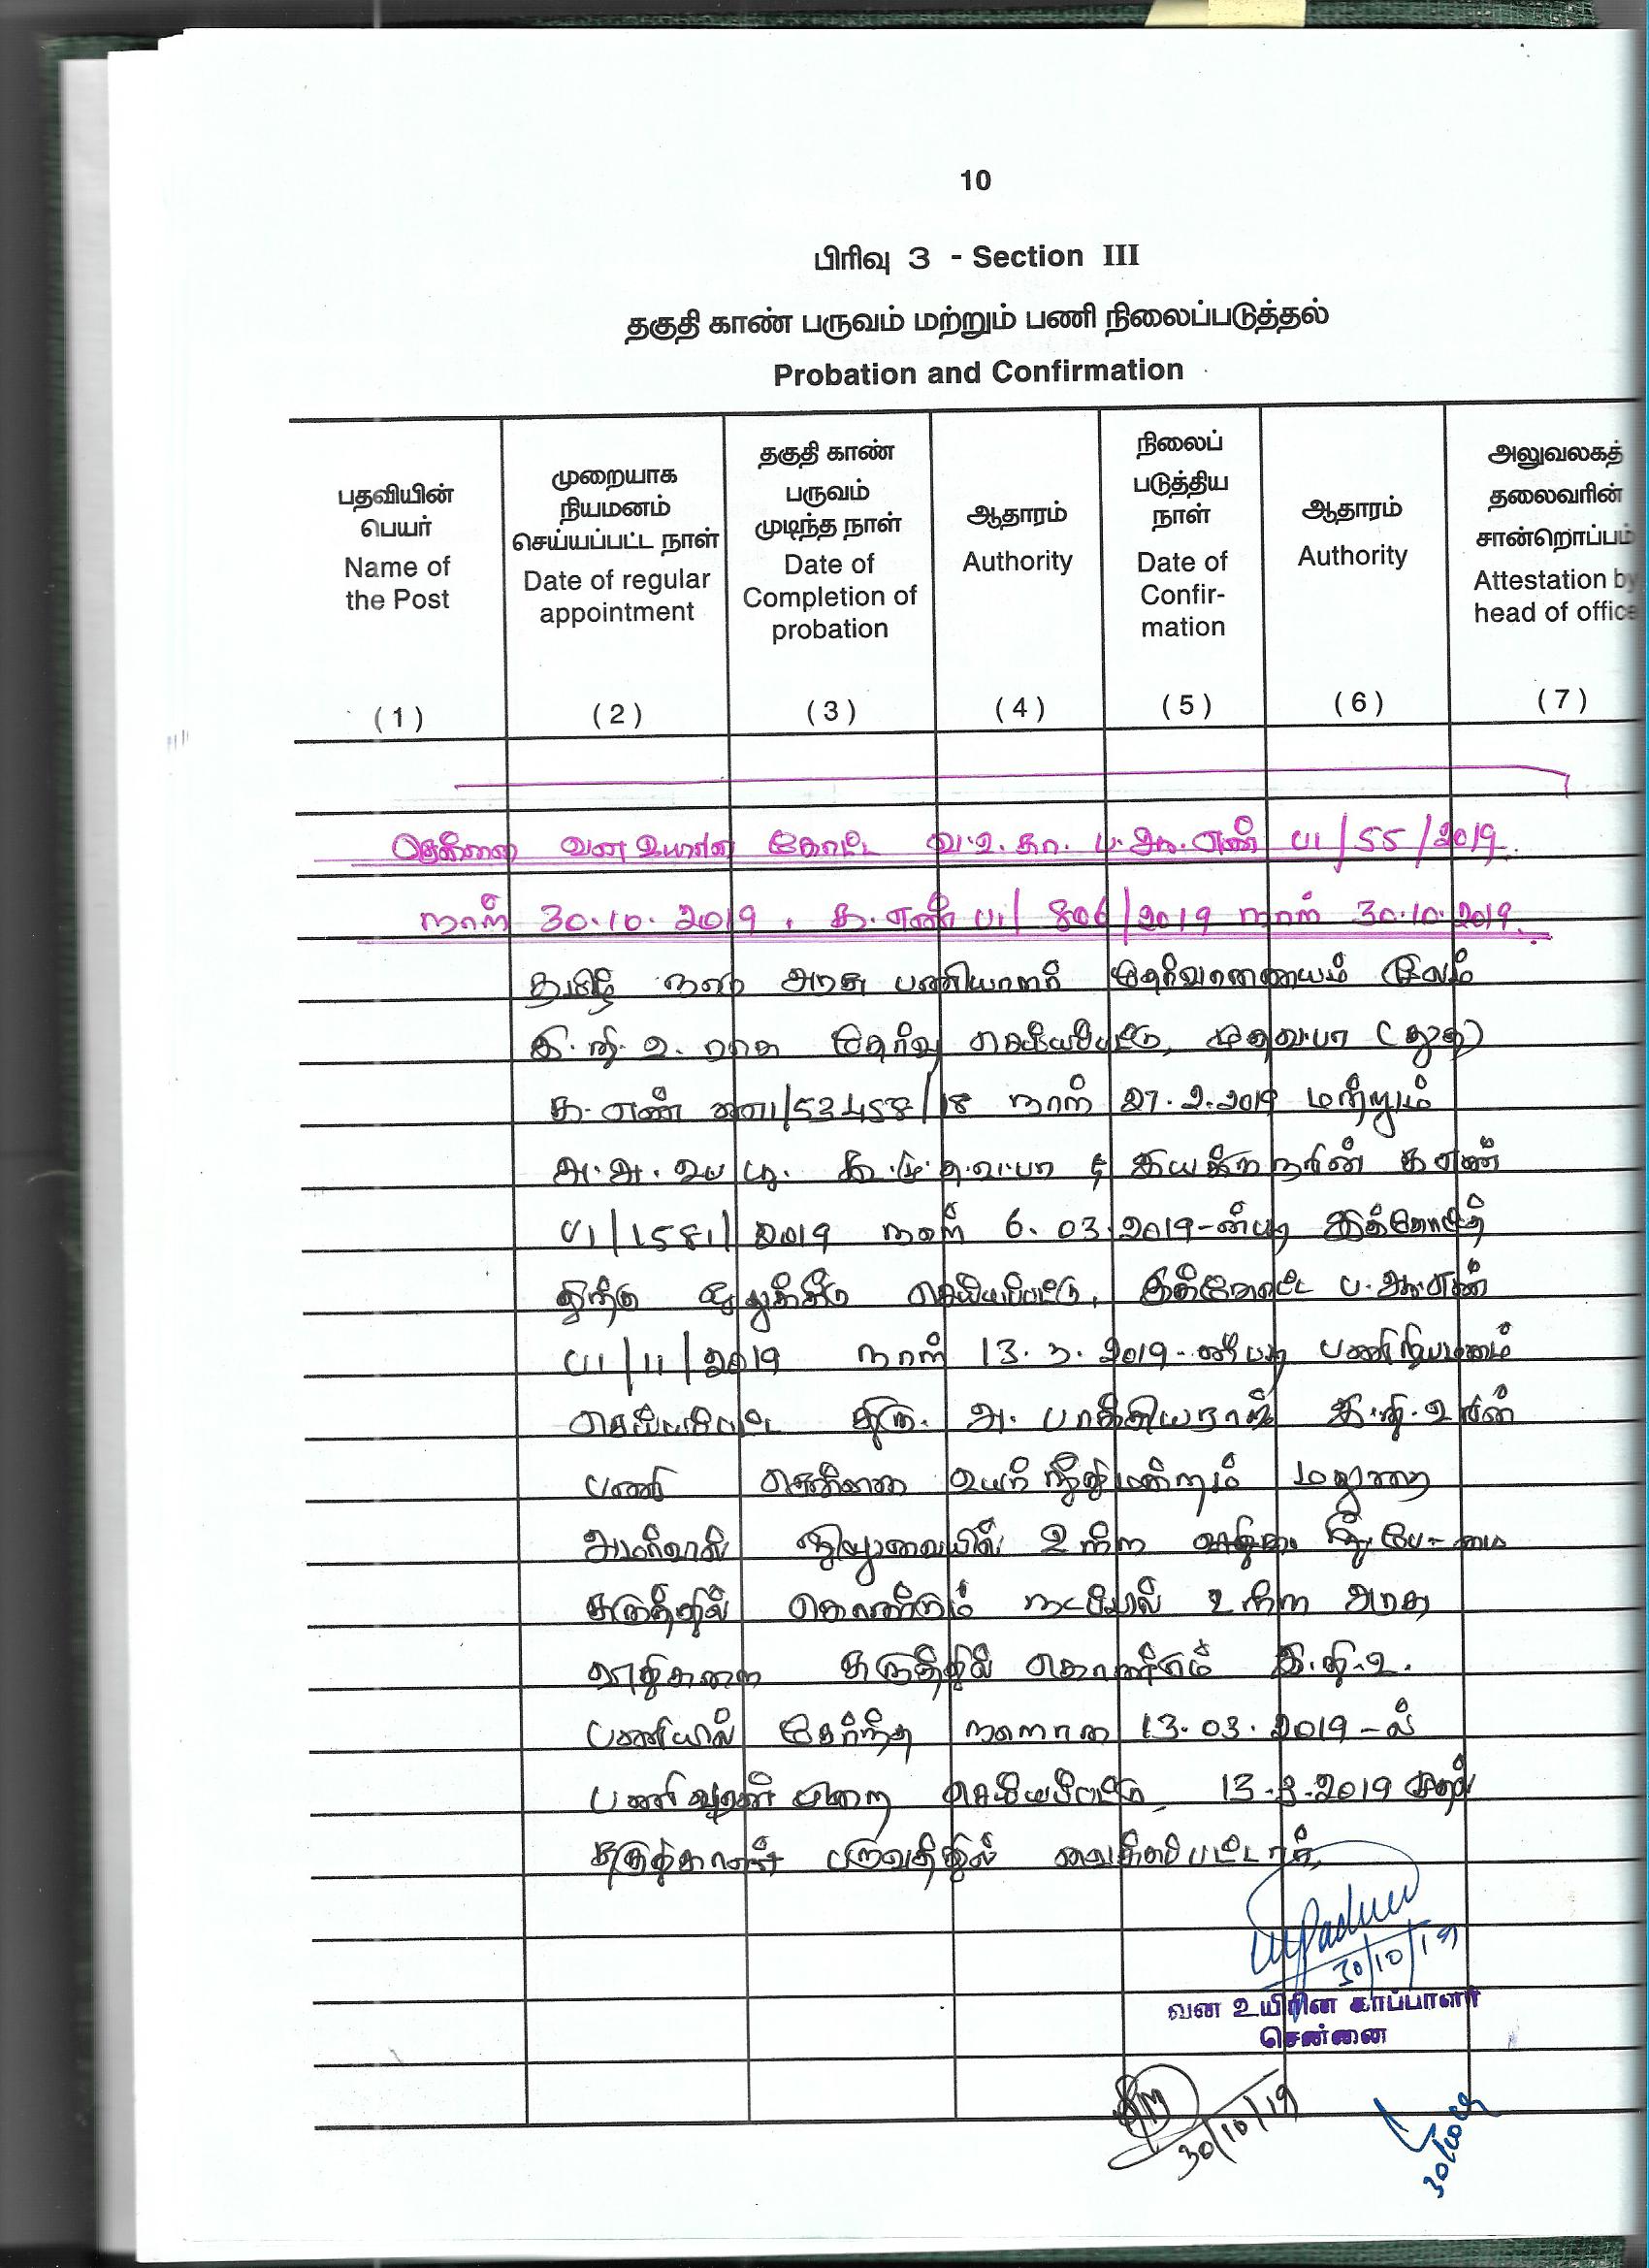 10
பிரிவு 3 - Section III
தகுதி காண் பருவம் மற்றும் பணி நிலைப்படுத்தல்
Probation and Confirmation
பதவியின் பெயர் Name of the Post (1)
முறையாக நியமனம் செய்யப்பட்ட நாள் Date of regular appointment (2)
தகுதி காண் பருவம் முடிந்த நாள் Date of Completion of probation (3)
ஆதாரம் Authority (4)
நிலைப் படுத்திய நாள் Date of Confir- mation (5)
ஆதாரம் Authority (6)
அலுவலகத் தலைவரின் சான்றொப்பம் Attestation by head of office (7)
சென்னை வன உயிரின கோட்ட வ.உ.கா. ப.ஆ.எண் ப1/55/2019
நாள் 30.10.2019, க.எண் ப1/806/2019 நாள் 30.10.2019.
தமிழ் நாடு அரசு பணியாளர் தேர்வாணையம் மூலம்
இ.நி.உ. ராக தேர்வு செய்யப்பட்டு, முதவபா (துத)
க.எண் 53458/18 நாள் 27.2.2019 மற்றும்
அ.அ. உ பூ. இயக்குநரின் க எண்
ப1/1581/2019 நாள் 6.03.2019-ன்படி இக்கோட்டத்
திற்கு ஒதுக்கீடு செய்யப்பட்டு, இக்கோட்ட ப.ஆ.எண்
ப1/11/2019 நாள் 13.3.2019-ன்படி பணிநியமனம்
செய்யப்பட்ட திரு. அ. பாக்கியராஜ் இ.நி.உ வின்
பணி சென்னை உயர் நீதிமன்றம் மதுரை
அமர்வால் நிலுவையில் உள்ள
கருத்தில் கொண்டும் உள்ள அரசு
விதிகளை கருத்தில் கொண்டும் இ.நி.உ.
பணியில் சேர்ந்த நாளான 13.03.2019-ல்
பணி வரன் முறை செய்யப்பட்டு, 13.3.2019 முதல்
தகுதிகாண் பருவத்தில் வைக்கப்பட்டார்.
30/10/19
வன உயிரின காப்பாளர்
சென்னை
30/10/19